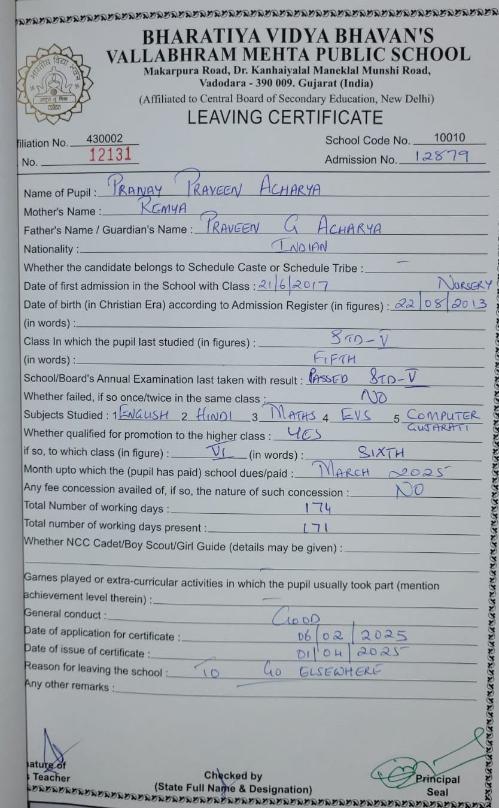 BHARATIYA VIDYA BHAVAN'S
VALLABHRAM MEHTA PUBLIC SCHOOL
Makarpura Road, Dr. Kanhaiyalal Maneklal Munshi Road,
Vadodara - 390 009. Gujarat (India)
(Affiliated to Central Board of Secondary Education, New Delhi)
LEAVING CERTIFICATE
filiation No. 430002 School Code No. 10010
No. 12131 Admission No. 12879
Name of Pupil : PRANAY PRAVEEN ACHARYA
Mother's Name : REMYA
Father's Name / Guardian's Name : PRAVEEN G ACHARYA
Nationality : INDIAN
Whether the candidate belongs to Schedule Caste or Schedule Tribe : —
Date of first admission in the School with Class : 21/6/2017 NURSERY
Date of birth (in Christian Era) according to Admission Register (in figures) : 22/08/2013
(in words) :
Class In which the pupil last studied (in figures) : STD-V
(in words) : FIFTH
School/Board's Annual Examination last taken with result : PASSED STD-V
Whether failed, if so once/twice in the same class : NO
Subjects Studied : 1 ENGLISH 2 HINDI 3 MATHS 4 EVS 5 COMPUTER
GUJARATI
Whether qualified for promotion to the higher class : YES
if so, to which class (in figure) : VI (in words) : SIXTH
Month upto which the (pupil has paid) school dues/paid : MARCH 2025
Any fee concession availed of, if so, the nature of such concession : NO
Total Number of working days : 174
Total number of working days present : 171
Whether NCC Cadet/Boy Scout/Girl Guide (details may be given) :
—
Games played or extra-curricular activities in which the pupil usually took part (mention
achievement level therein) : —
General conduct : GOOD
Date of application for certificate : 06/02/2025
Date of issue of certificate : 01/04/2025
Reason for leaving the school : TO GO ELSEWHERE
Any other remarks :
ature of
Teacher
Checked by
(State Full Name & Designation)
Principal
Seal